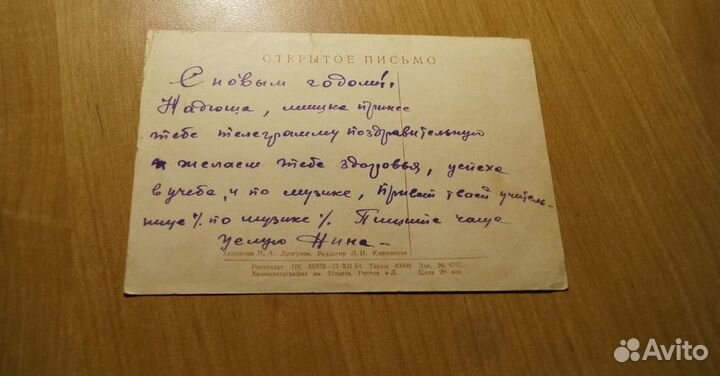 ОТКРЫТОЕ ПИСЬМО
С новым годом!
Надюша, мишка принес
тебе телеграмму поздравительную
и желаем тебе здоровья, успеха
в учебе, и по музыке, привет твоей учитель-
нице % по музыке % Пишите чаще
Целую Нина —
Художник Н. А. Драгунов. Редактор Л. Н.
Ростоблат. ПК 36479—21-XII 54. Тираж 40000. Зак. № 4792.
Хромолитография им. Ильича, Ростов н-Д. Цена 20 коп.
Avito